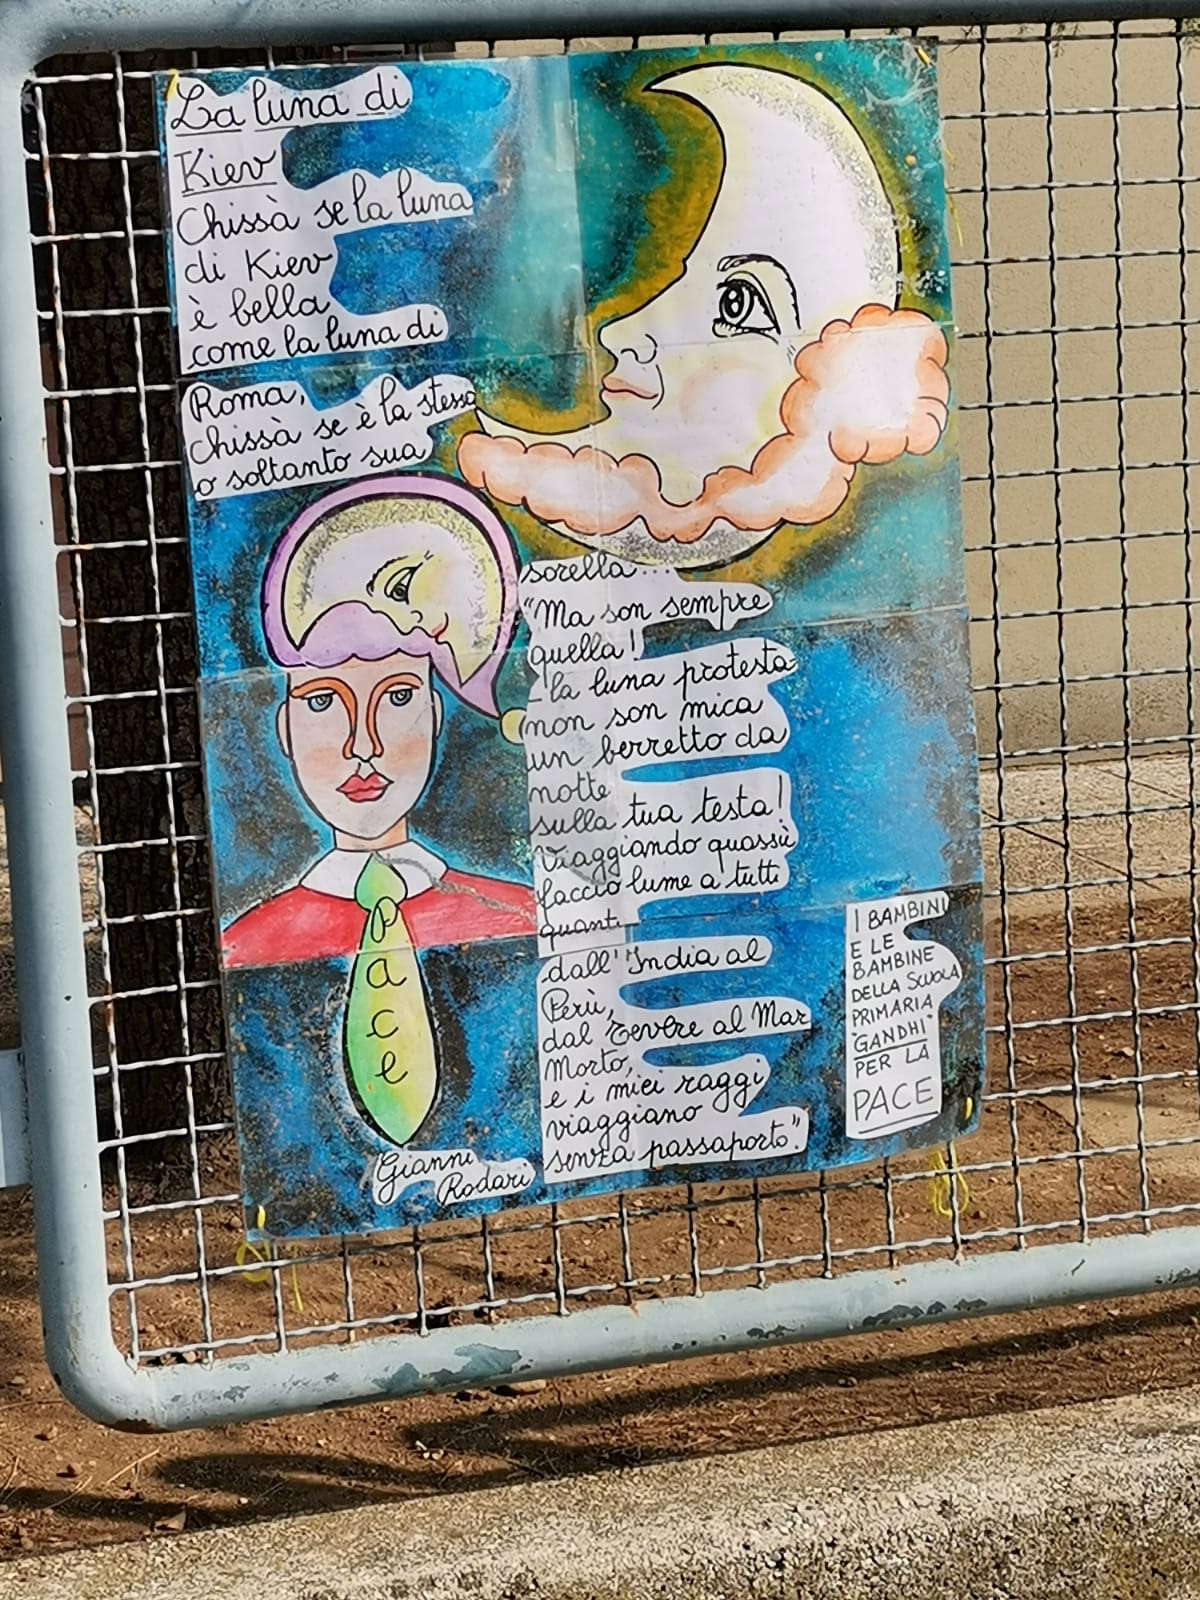 La luna di
Kiev
Chissà se la luna
di Kiev
è bella
come la luna di
Roma,
chissà se è la stessa
o soltanto sua
sorella...
"Ma son sempre
quella!
-la luna protesta-
non son mica
un berretto da
notte
sulla tua testa!
Viaggiando quassù
faccio lume a tutti
quanti
dall'India al
Perù,
dal Tevere al Mar
Morto,
e i miei raggi
viaggiano
senza passaporto".
Pace
Gianni
Rodari
I BAMBINI
E LE
BAMBINE
DELLA SCUOLA
PRIMARIA
"GANDHI"
PER LA
PACE